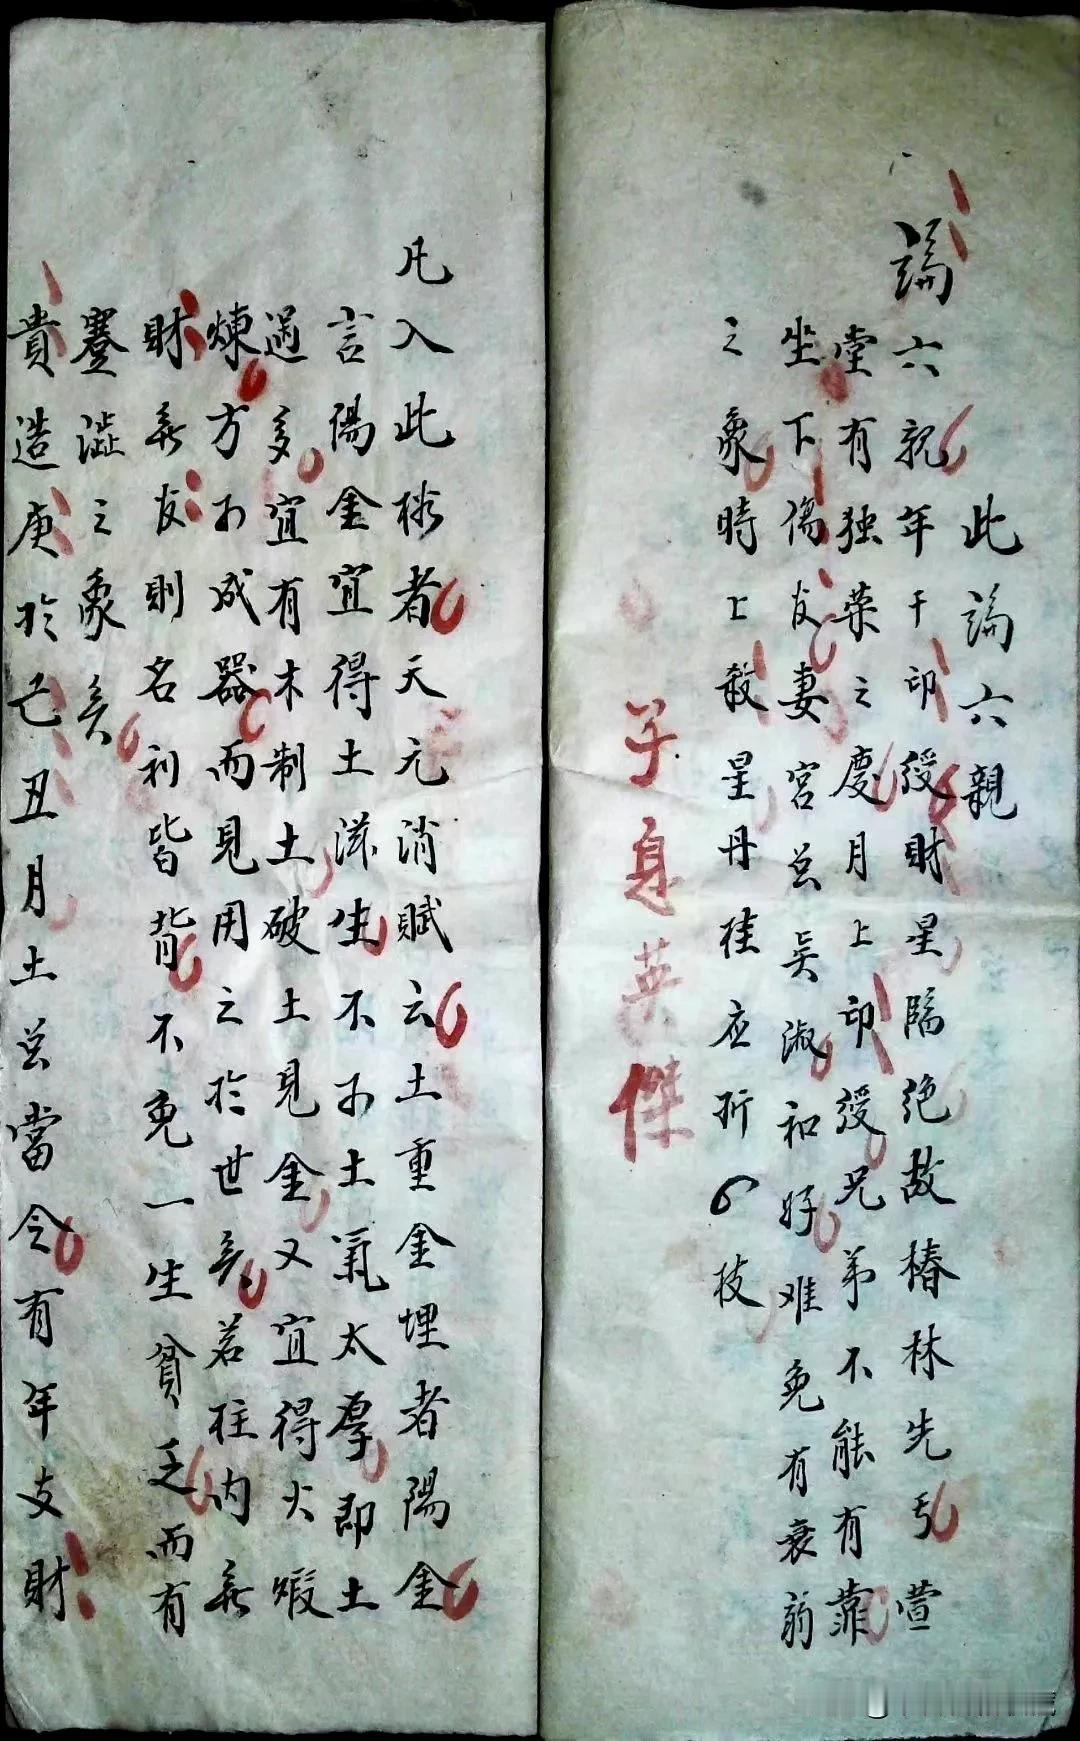 此論六親
論六親年干印綬財星臨绝故椿林先亏萱
堂有独荣之慶月上印綬兄弟不能有靠
坐下傷友妻宮总吴淑和好难免有衰弱
之象時上殺星丹桂应折六枝
子息英傑
凡入此格者天元消賦云土重金埋者陽金
言陽金宜得土滋生不可土氣太厚即土
過多宜有木制土破土見金又宜得火煅
煉方可成器而見用之於世矣若柱内無
財無友則名利皆背不免一生貧乏而有
蹇澁之象矣
貴造庚於己丑月土总當令有年支財